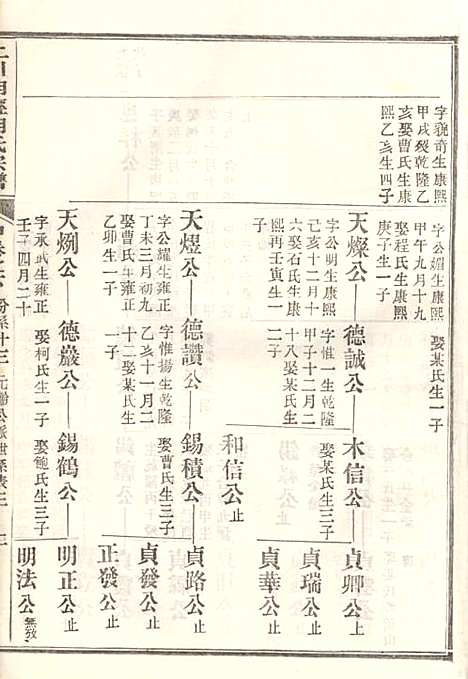 字貌奇生康熙
甲戌歿乾隆乙
亥娶曹氏生康
熙乙亥生四子
字公媚生康熙
甲午九月十九
娶程氏生一子
庚子生一子
娶某氏生一子
天燦公——德誠公——木信公——貞卿公上
字公明生康熙
己亥十二月十
六娶石氏生康
熙再壬寅生一
子
字惟一生乾隆
甲子十二月二
十八娶某氏生
二子
娶某氏生三子
貞瑞公止
貞華公止
和信公止
天煜公——德讚公——錫積公——貞路公止
字公耀生雍正
丁未三月初九
娶曹氏生雍正
乙卯生一子
字惟揚生乾隆
乙亥十一月二
十二娶某氏生
一子
娶曹氏生三子
貞發公止
正發公止
天烱公——德巖公——錫鶴公——明正公止
字承武生雍正
壬子四月二十
娶柯氏生一子
娶鮑氏生三子
明法公無致